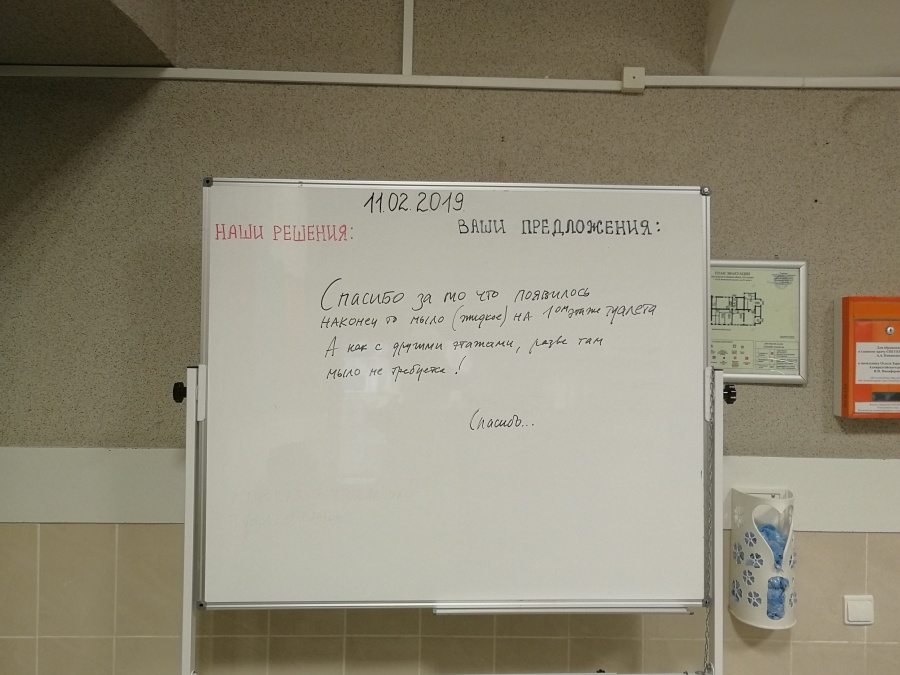 11.02.2019.
НАШИ РЕШЕНИЯ:
ВАШИ ПРЕДЛОЖЕНИЯ:
Спасибо за то что появилось
наконец то мыло (жидкое) на 1ом этаже туалета
А как с другими этажами, разве там
мыло не требуется!
Спасибо...
ПЛАН ЭВАКУАЦИИ